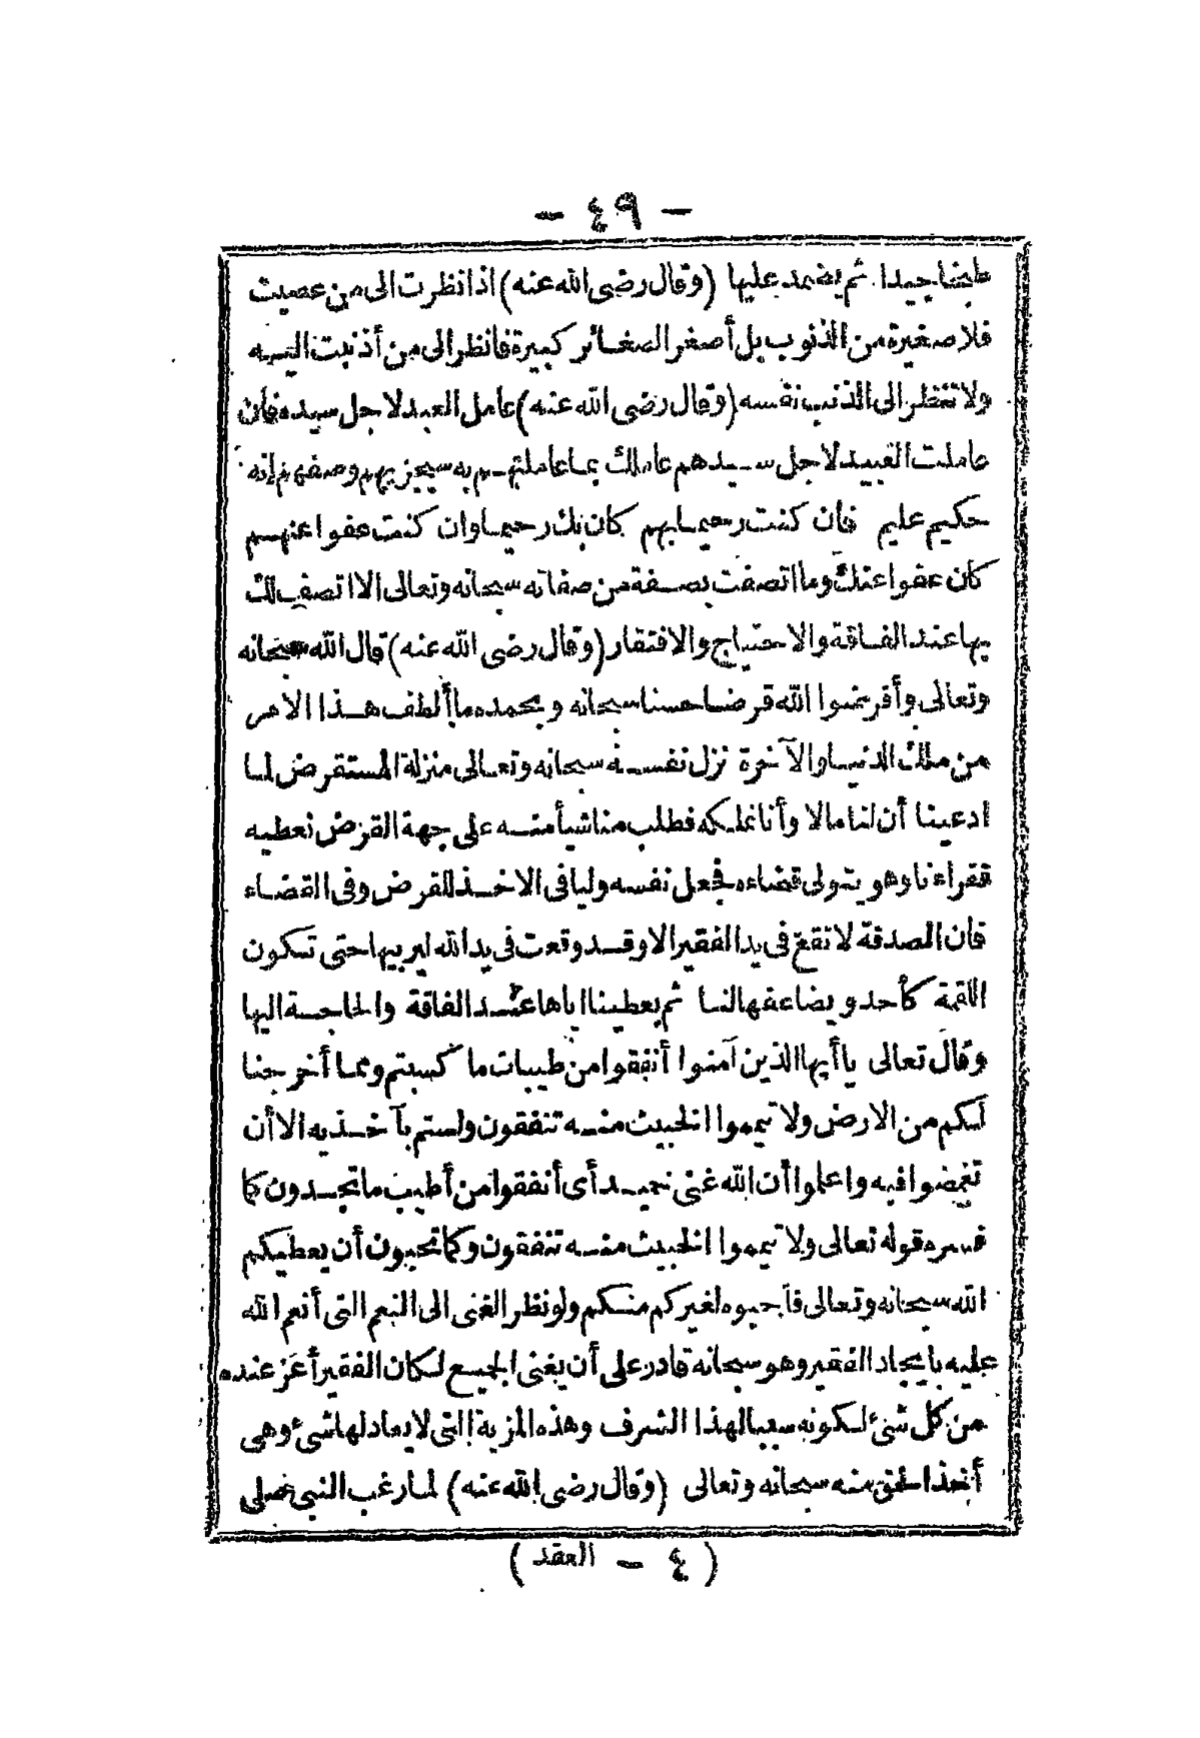 - ٤٩ -
طبخا جيدا ثم يضمد عليها (وقال رضى الله عنه) اذا نظرت الى من عصيت
فلا صغيرة من الذنوب بل أصغر الصغائر كبيرة فانظر الى من أذنبت اليه
ولا تنظر الى الذنب نفسه (وقال رضى الله عنه) عامل العبد لاجل سيده فان
عاملت العبيد لاجل سيدهم عاملك بما عاملتهم به سيجزيهم وصفهم إنه
حكيم عليم فان كنت رحيما بهم كان بك رحيما وان كنت عفوا عنهم
كان عفوا عنك وما اتصفت بصفة من صفاته سبحانه وتعالى الا اتصف لك
بها عند الفاقة والاحتياج والافتقار (وقال رضى الله عنه) قال الله سبحانه
وتعالى وأقرضوا الله قرضا حسنا سبحانه وبحمده ما ألطف هذا الامر
من ملك الدنيا والآخرة نزل نفسه سبحانه وتعالى منزلة المستقرض لما
ادعينا أن لنا مالا وأنا نملكه فطلب منا شيأ منه على جهة القرض نعطيه
فقراءنا وهو يتولى قضاءه فجعل نفسه وليا فى الاخذ للقرض وفى القضاء
فان الصدقة لا تقع فى يد الفقير الا وقد وقعت فى يد الله ليربيها حتى تكون
اللقمة كأحد ويضاعفها لنا ثم يعطينا اياها عند الفاقة والحاجة اليها
وقال تعالى يا أيها الذين آمنوا أنفقوا من طيبات ما كسبتم ومما أخرجنا
لكم من الارض ولا تيمموا الخبيث منه تنفقون ولستم بآخذيه الا أن
تغمضوا فيه واعلموا أن الله غنى حميد أى أنفقوا من أطيب ما تجدون كما
فسره قوله تعالى ولا تيمموا الخبيث منه تنفقون وكما تحبون أن يعطيكم
الله سبحانه وتعالى فأحبوه لغيركم منكم ولو نظر الغنى الى النعم التى أنعم الله
عليه بايجاد الفقير وهو سبحانه قادر على أن يغنى الجميع لكان الفقير أعز عنده
من كل شئ لكونه سببا لهذا الشرف وهذه المزية التى لا يعادلها شىء وهى
أخذ الحق منه سبحانه وتعالى (وقال رضى الله عنه) لما رغب النبى صلى
(٤ - العقد)